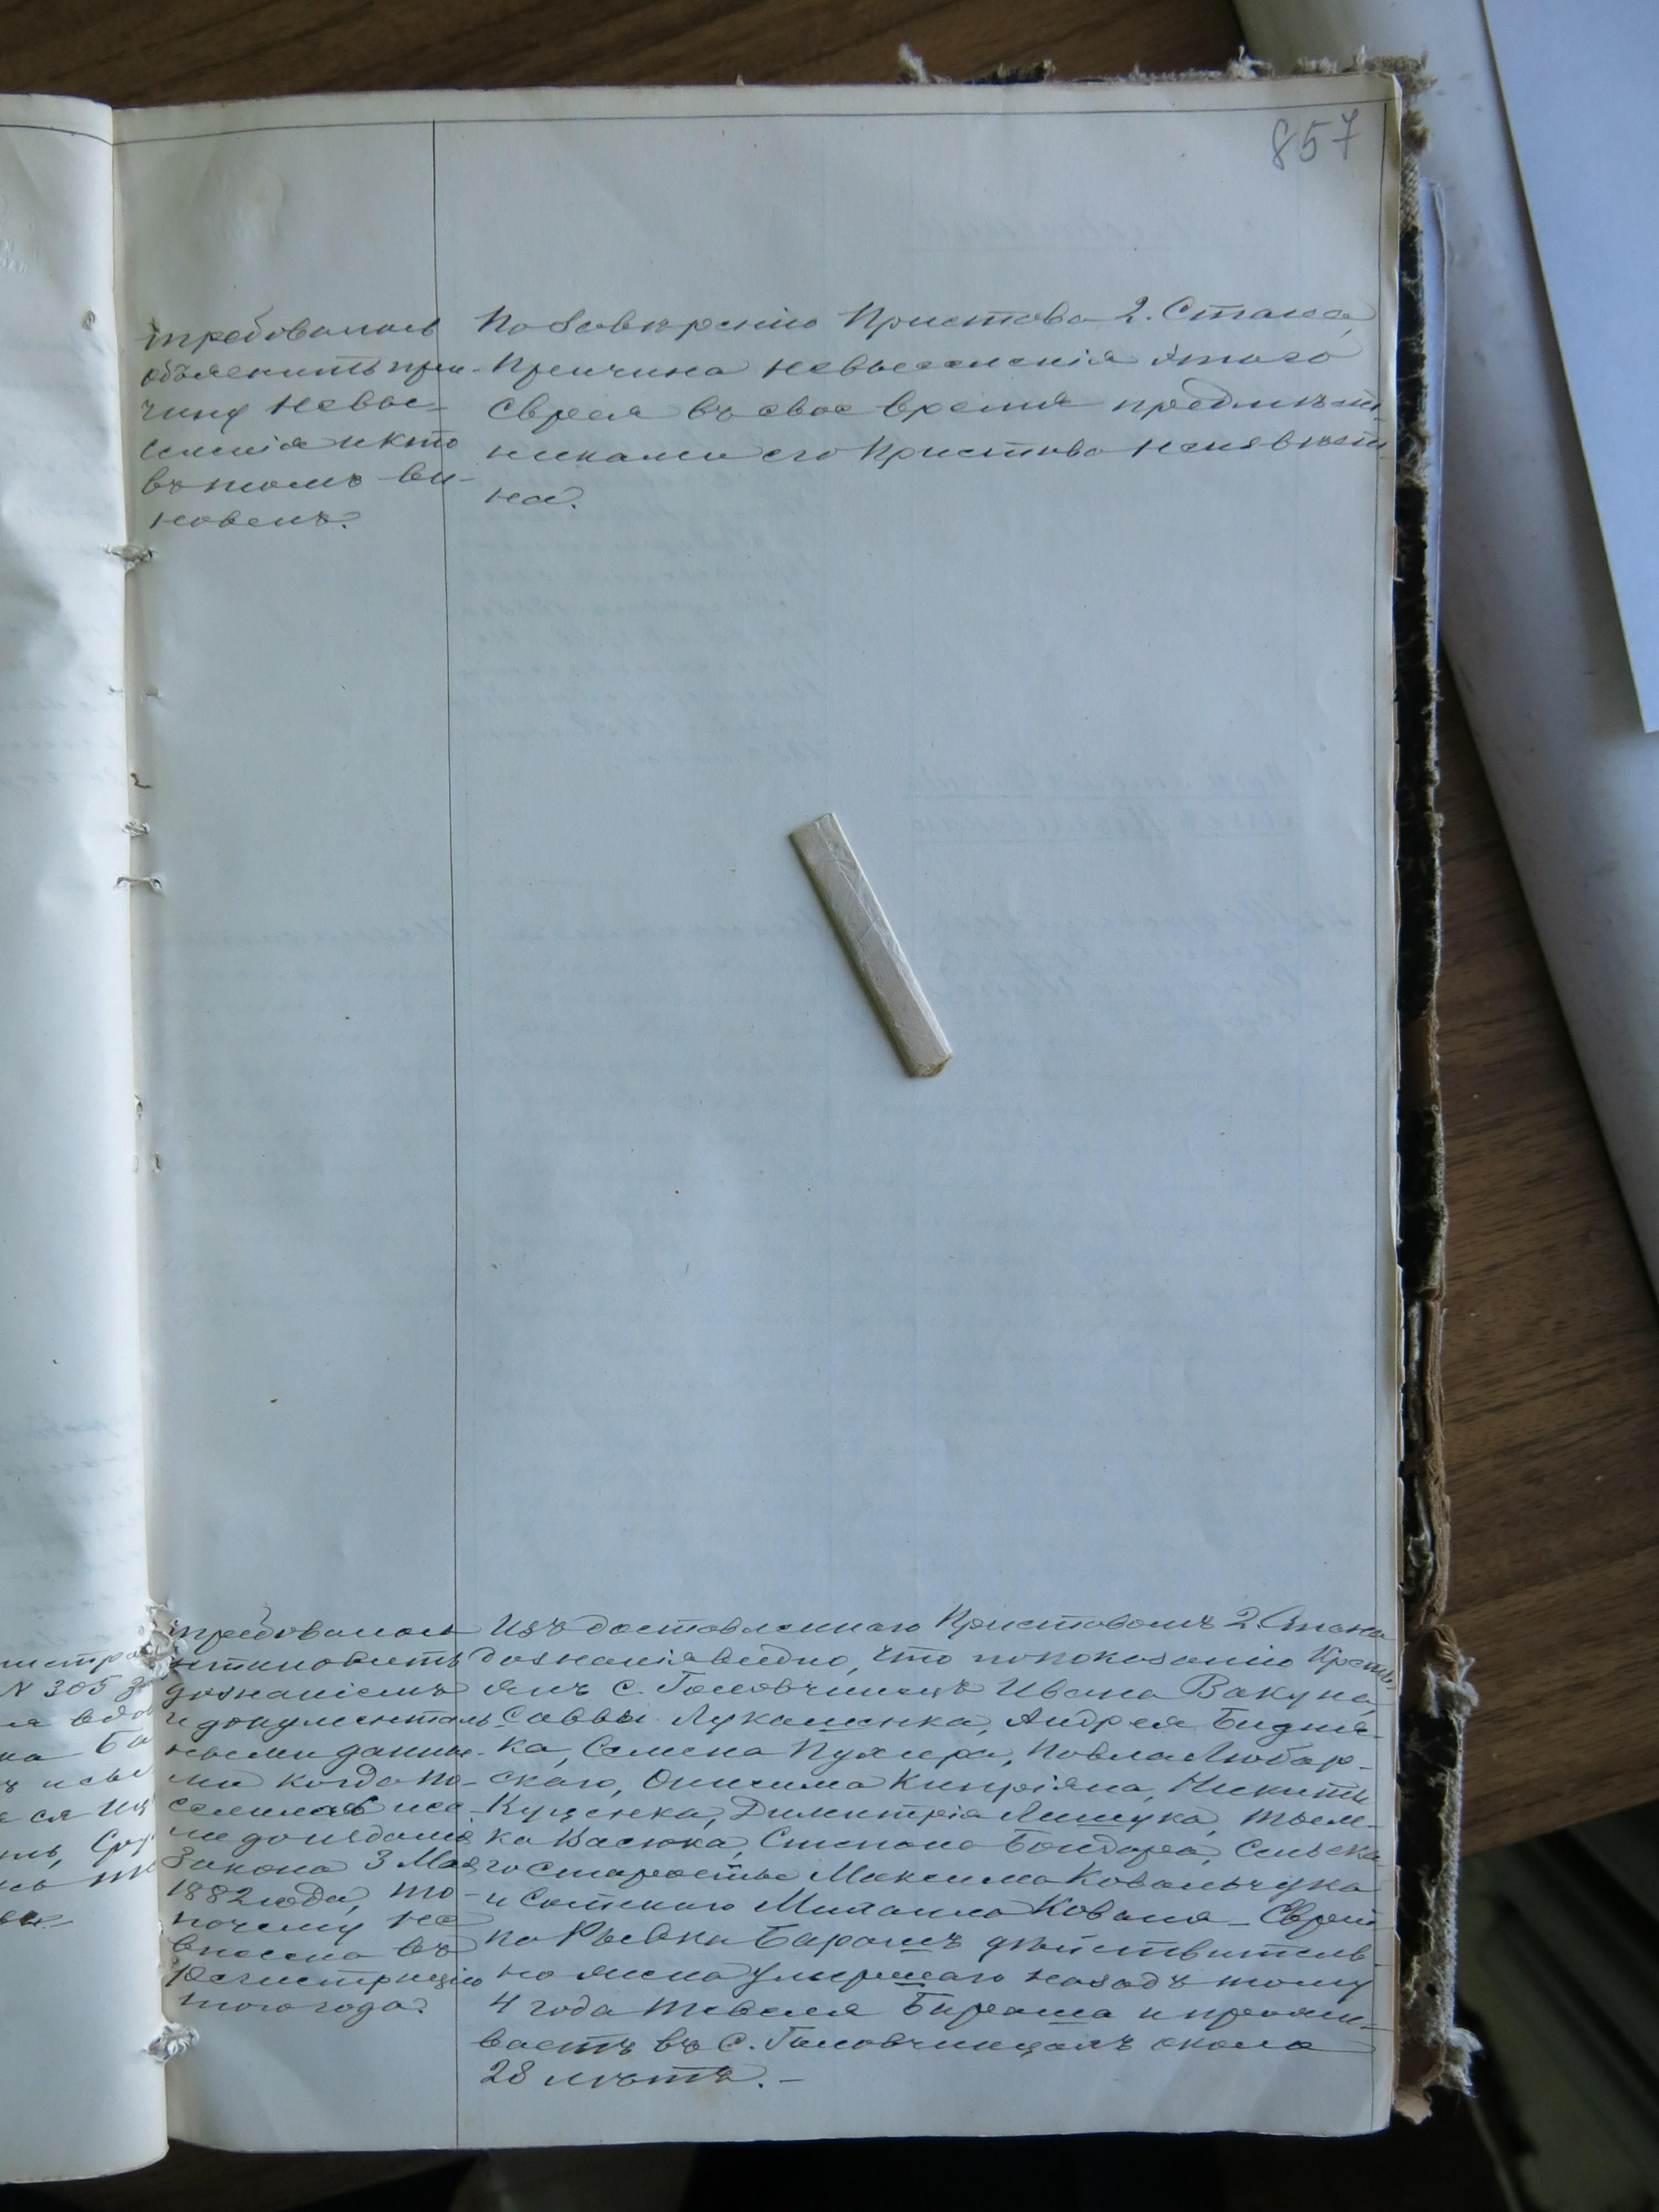 857
требовалось
объяснить при-
чину невы-
селенія и кто
въ томъ ви-
новенъ.
По завѣренію Пристава 2. Стана,
Причина невыселенія этого
Еврея въ свое время предмѣст
никами его Пристава неизвѣст
на.
требовалось
установить
дознаніемъ
и документаль
ными данны-
ми когда по-
селилась
ли до изданія
Закона 3 Мая
1882 года, то
почему не
внесена въ
Регистрацію
того года.
Изъ доставленнаго Приставомъ 2. Стана
дознанія видно, что по показанію Кресть-
янъ с. Головчинецъ Ивана Вакуна,
Саввы Лукашенка, Андрея Бидня-
ка, Семена Пухира, Павла Любар-
скаго, Онисима Кипріяна, Никиты
Куценка, Димитрія Лищука,
ка Васюка, Степана Бондаря, Сельска
го Старосты Максима Ковальчука
и Сотскаго Михаила Коваля – Еврей
ка Рывка Барашъ дѣйствитель
но жена умершаго назадъ тому
4 года Тевеля Бараша и прожи-
ваетъ въ с. Головчинцахъ около
28 лѣтъ. –
N 305